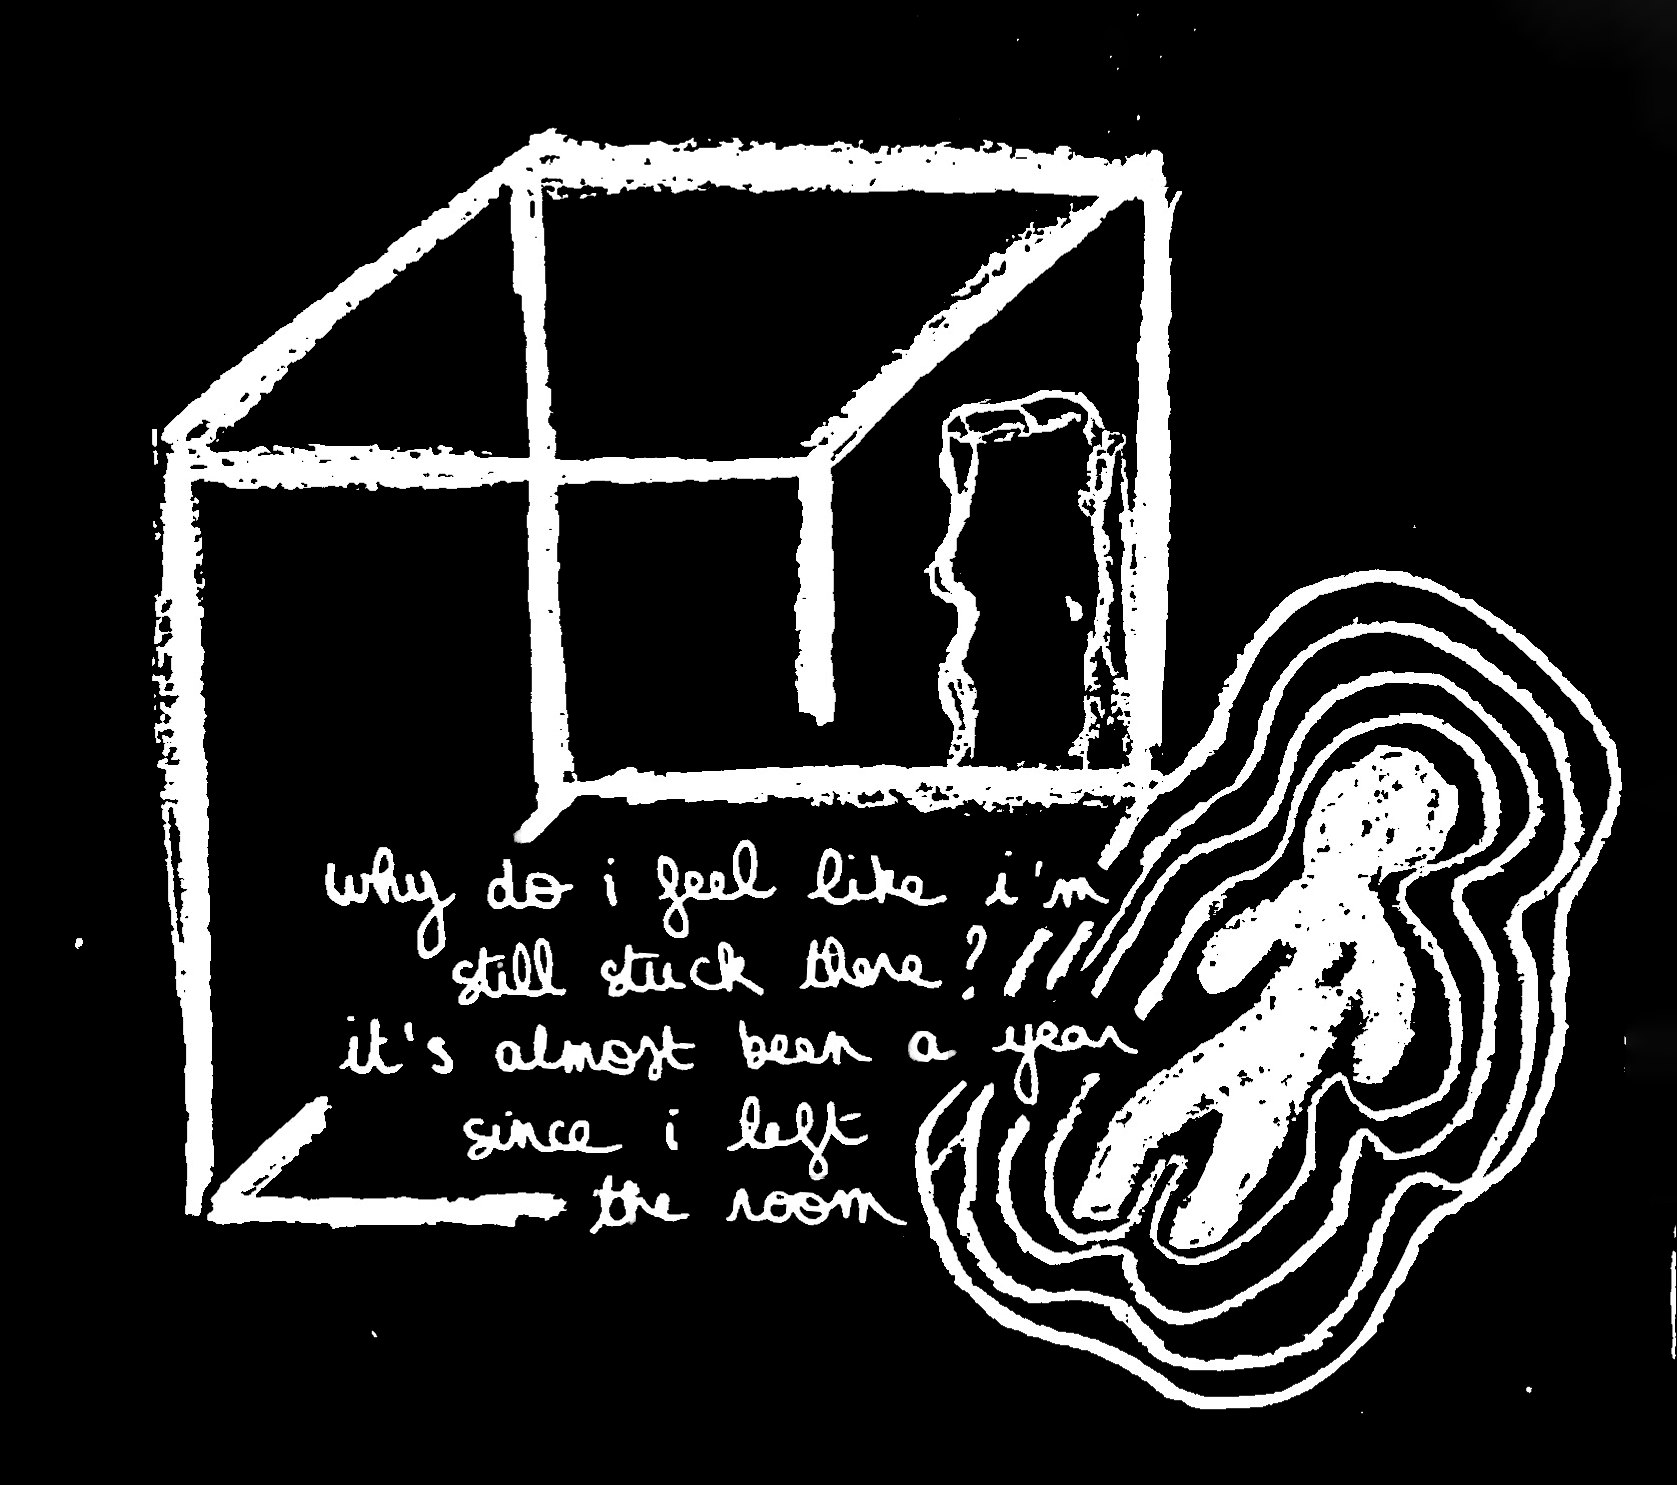 why do i feel like i'm
still stuck there?
it's almost been a year
since i left
the room